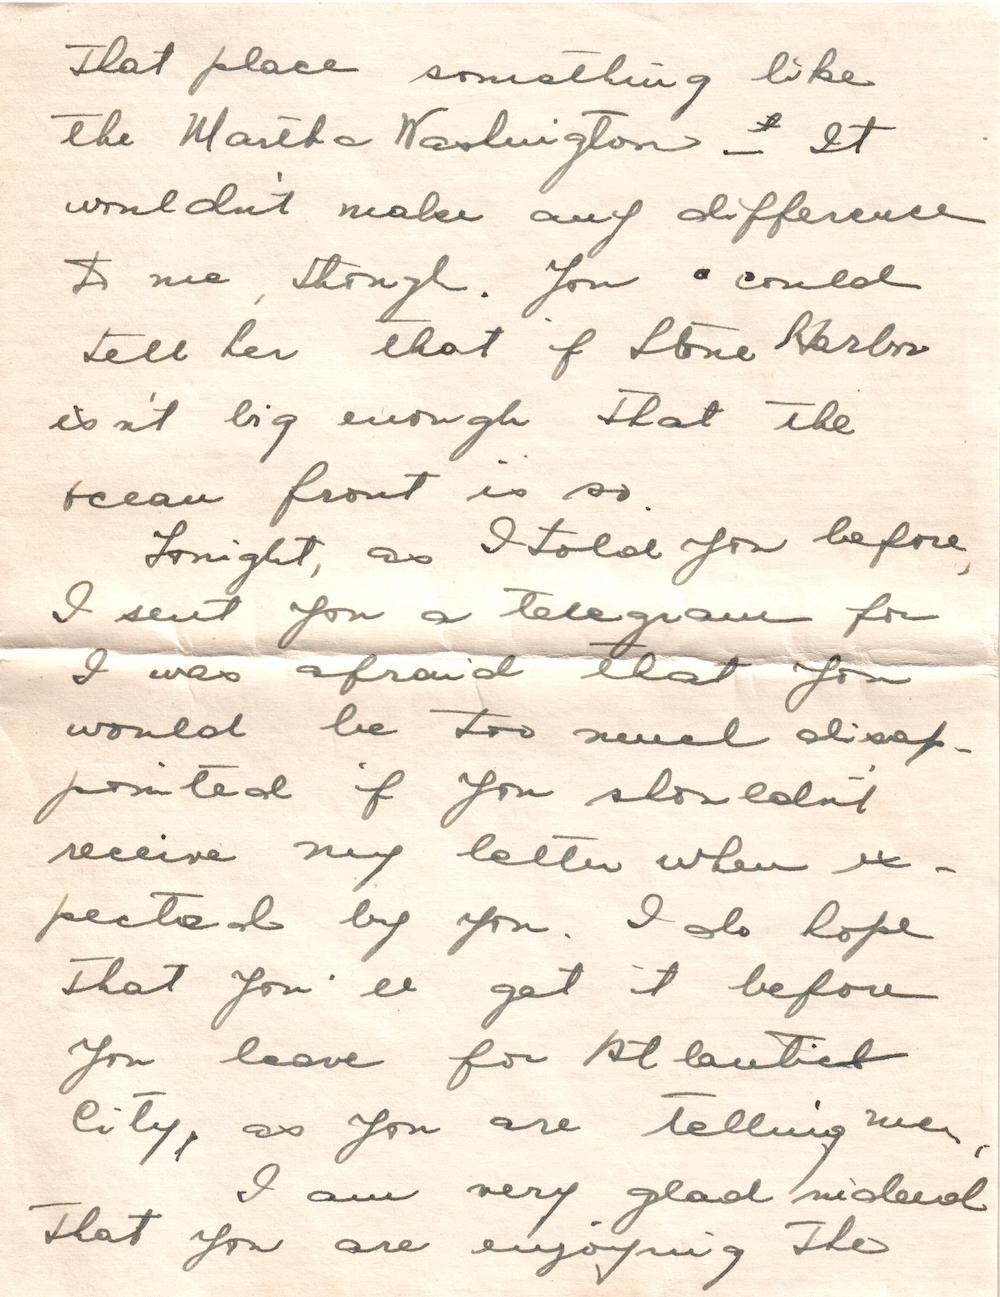 that place something like
the Martha Washington - It
wouldn't make any difference
to me, though. You could
tell her that if Stone Harbor
isn't big enough that the
ocean front is so.
Tonight, as I told you before,
I sent you a telegram for
I was afraid that you
would be too much disap-
pointed if you shouldn't
receive my letter when ex-
pected by you. I do hope
that you'll get it before
you leave for Atlantic
City, as you are telling me.
I am very glad indeed
that you are enjoying the